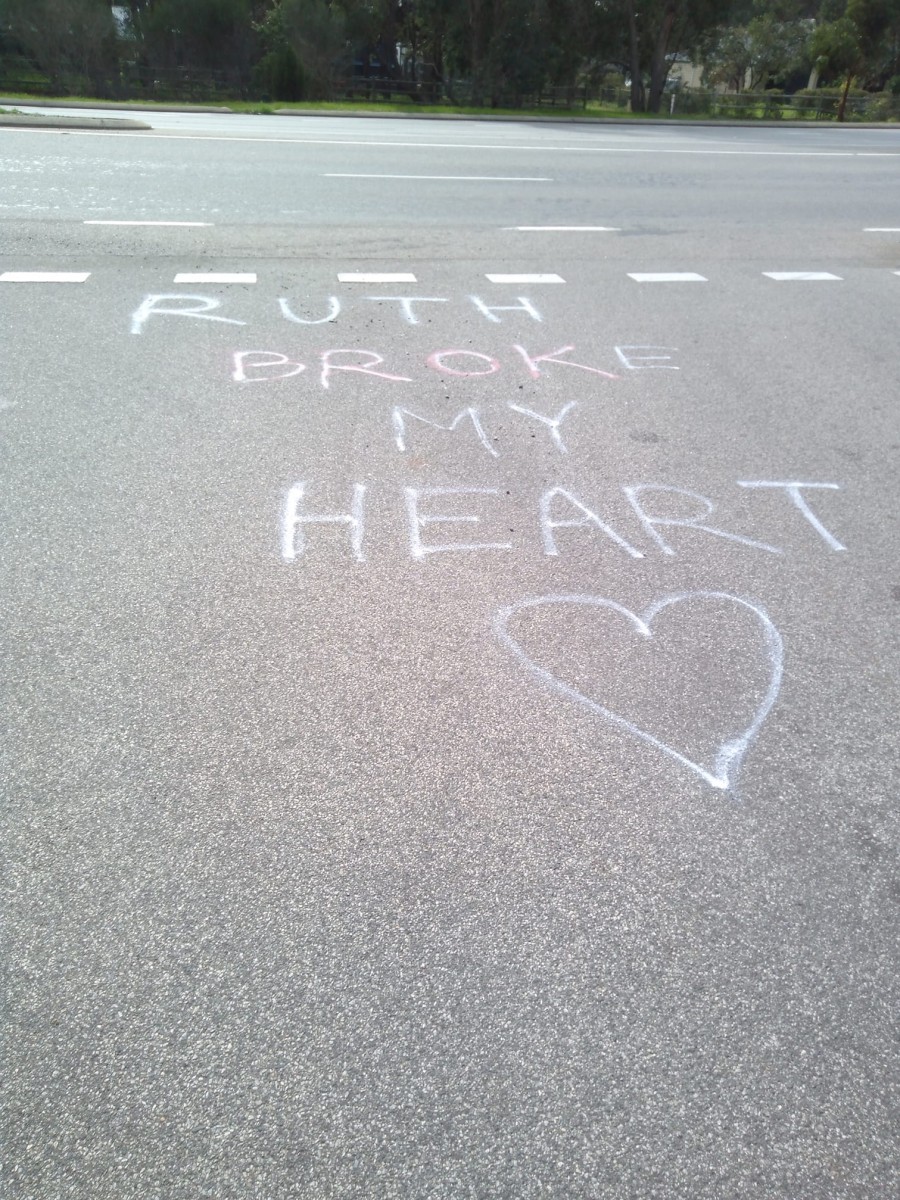 RUTH
BROKE
MY
HEART